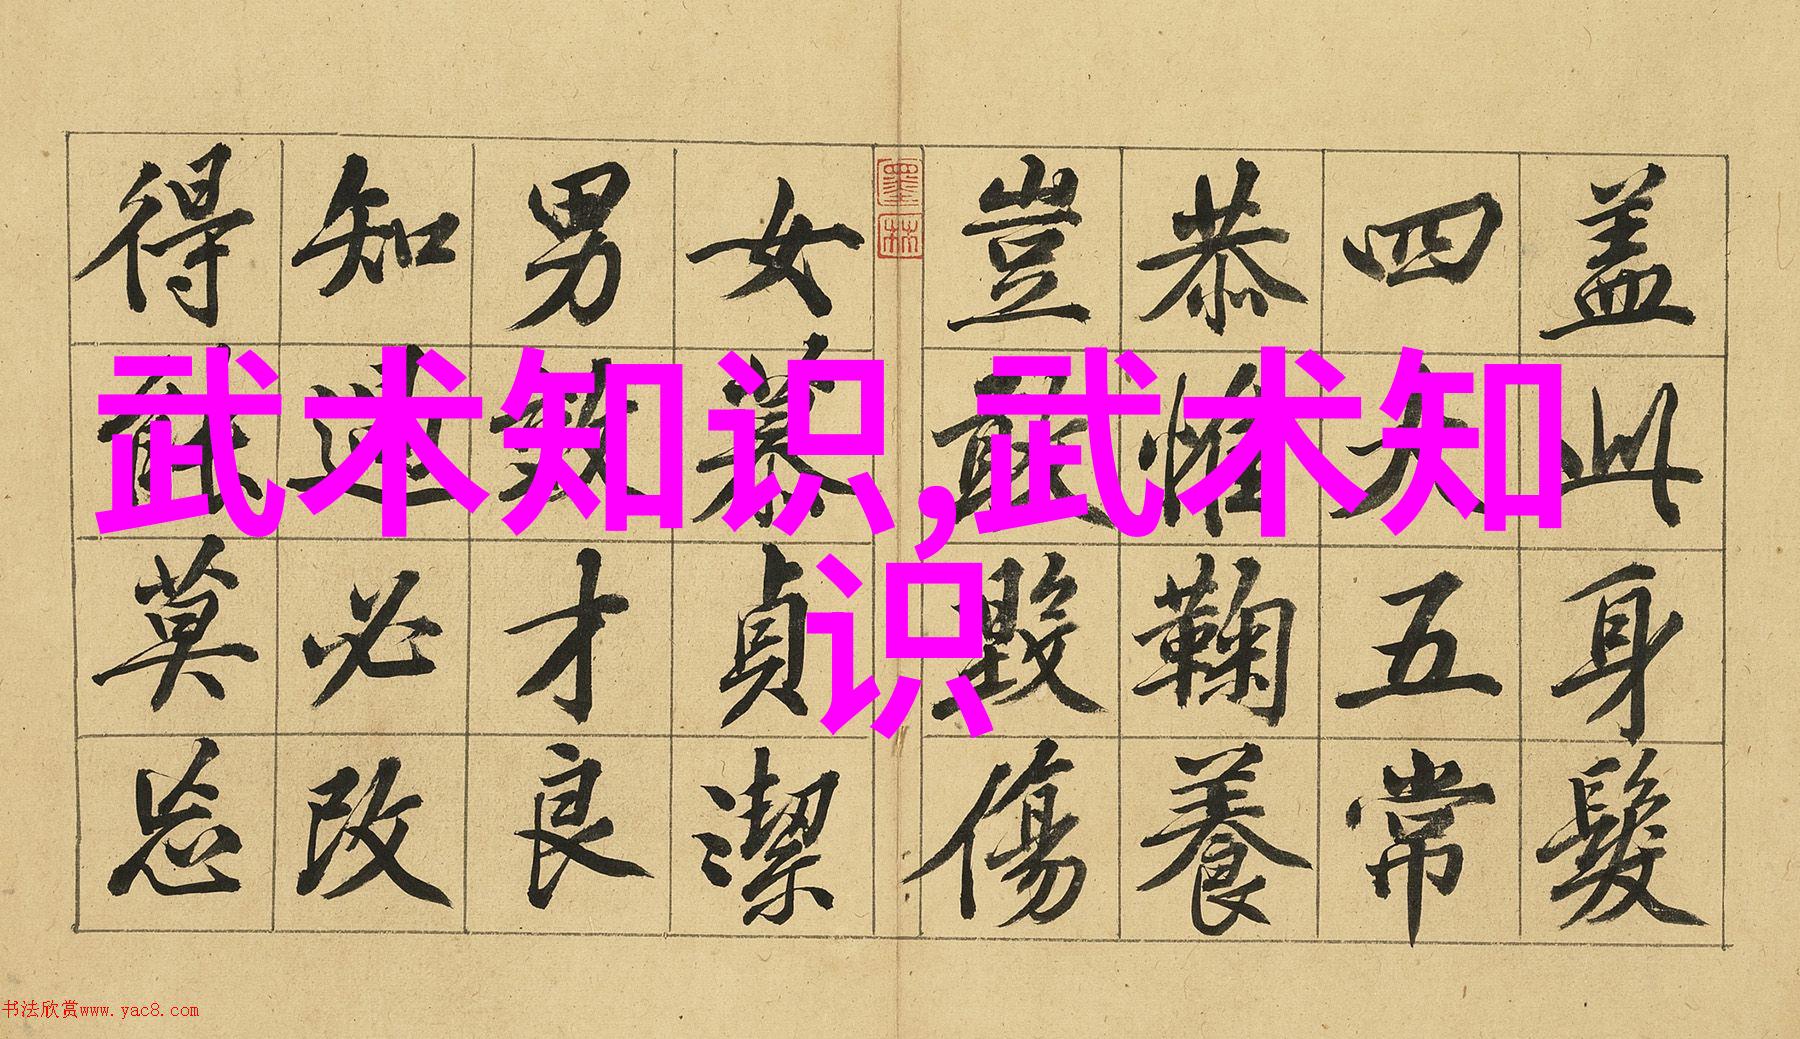 盖此身髮
四大五常
恭惟鞠養
豈敢毀傷
墨林
女慕貞潔
男效才良
知過必改
得能莫忘
武术知识,武术知
识
书法欣赏www.yac8.com